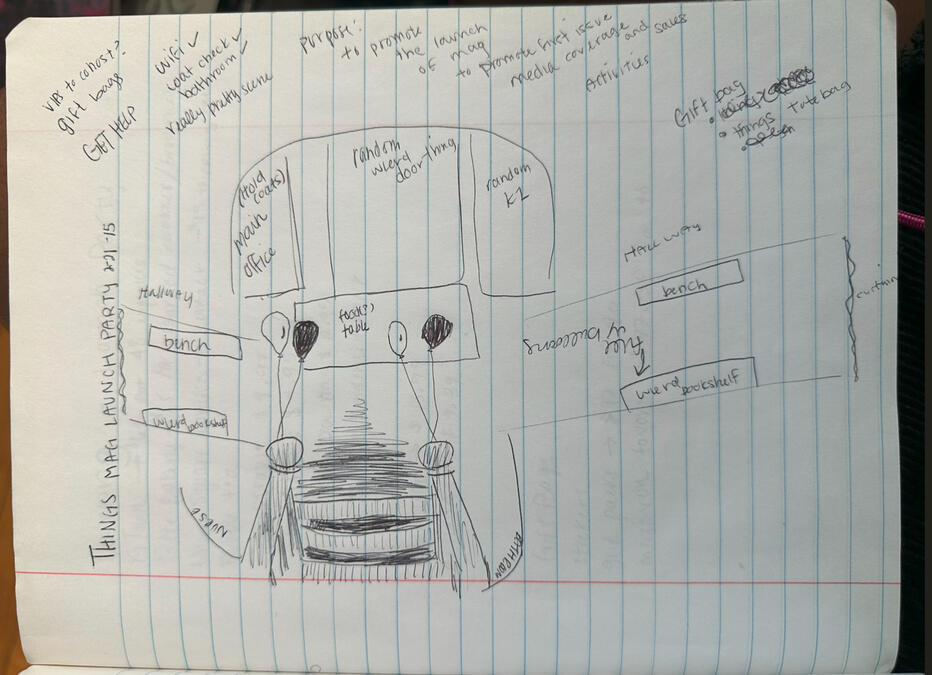 VIPs to cohost?
gift bags
GET HELP
wifi ✓
coat check ✓
bathroom ✓
really pretty scene
purpose:
to promote
the launch
of mag
to promote first issue
media coverage and sales
Activities
Gift bag
• things tote bag
THINGS MAG LAUNCH PARTY
(Hold
coats)
main
office
random
wierd
door thing
random
k2
Hallway
bench
wierd bookshelf
table
Hallway
bench
curtain
full
of balloons
wierd bookshelf
NURSE
BATHROOM